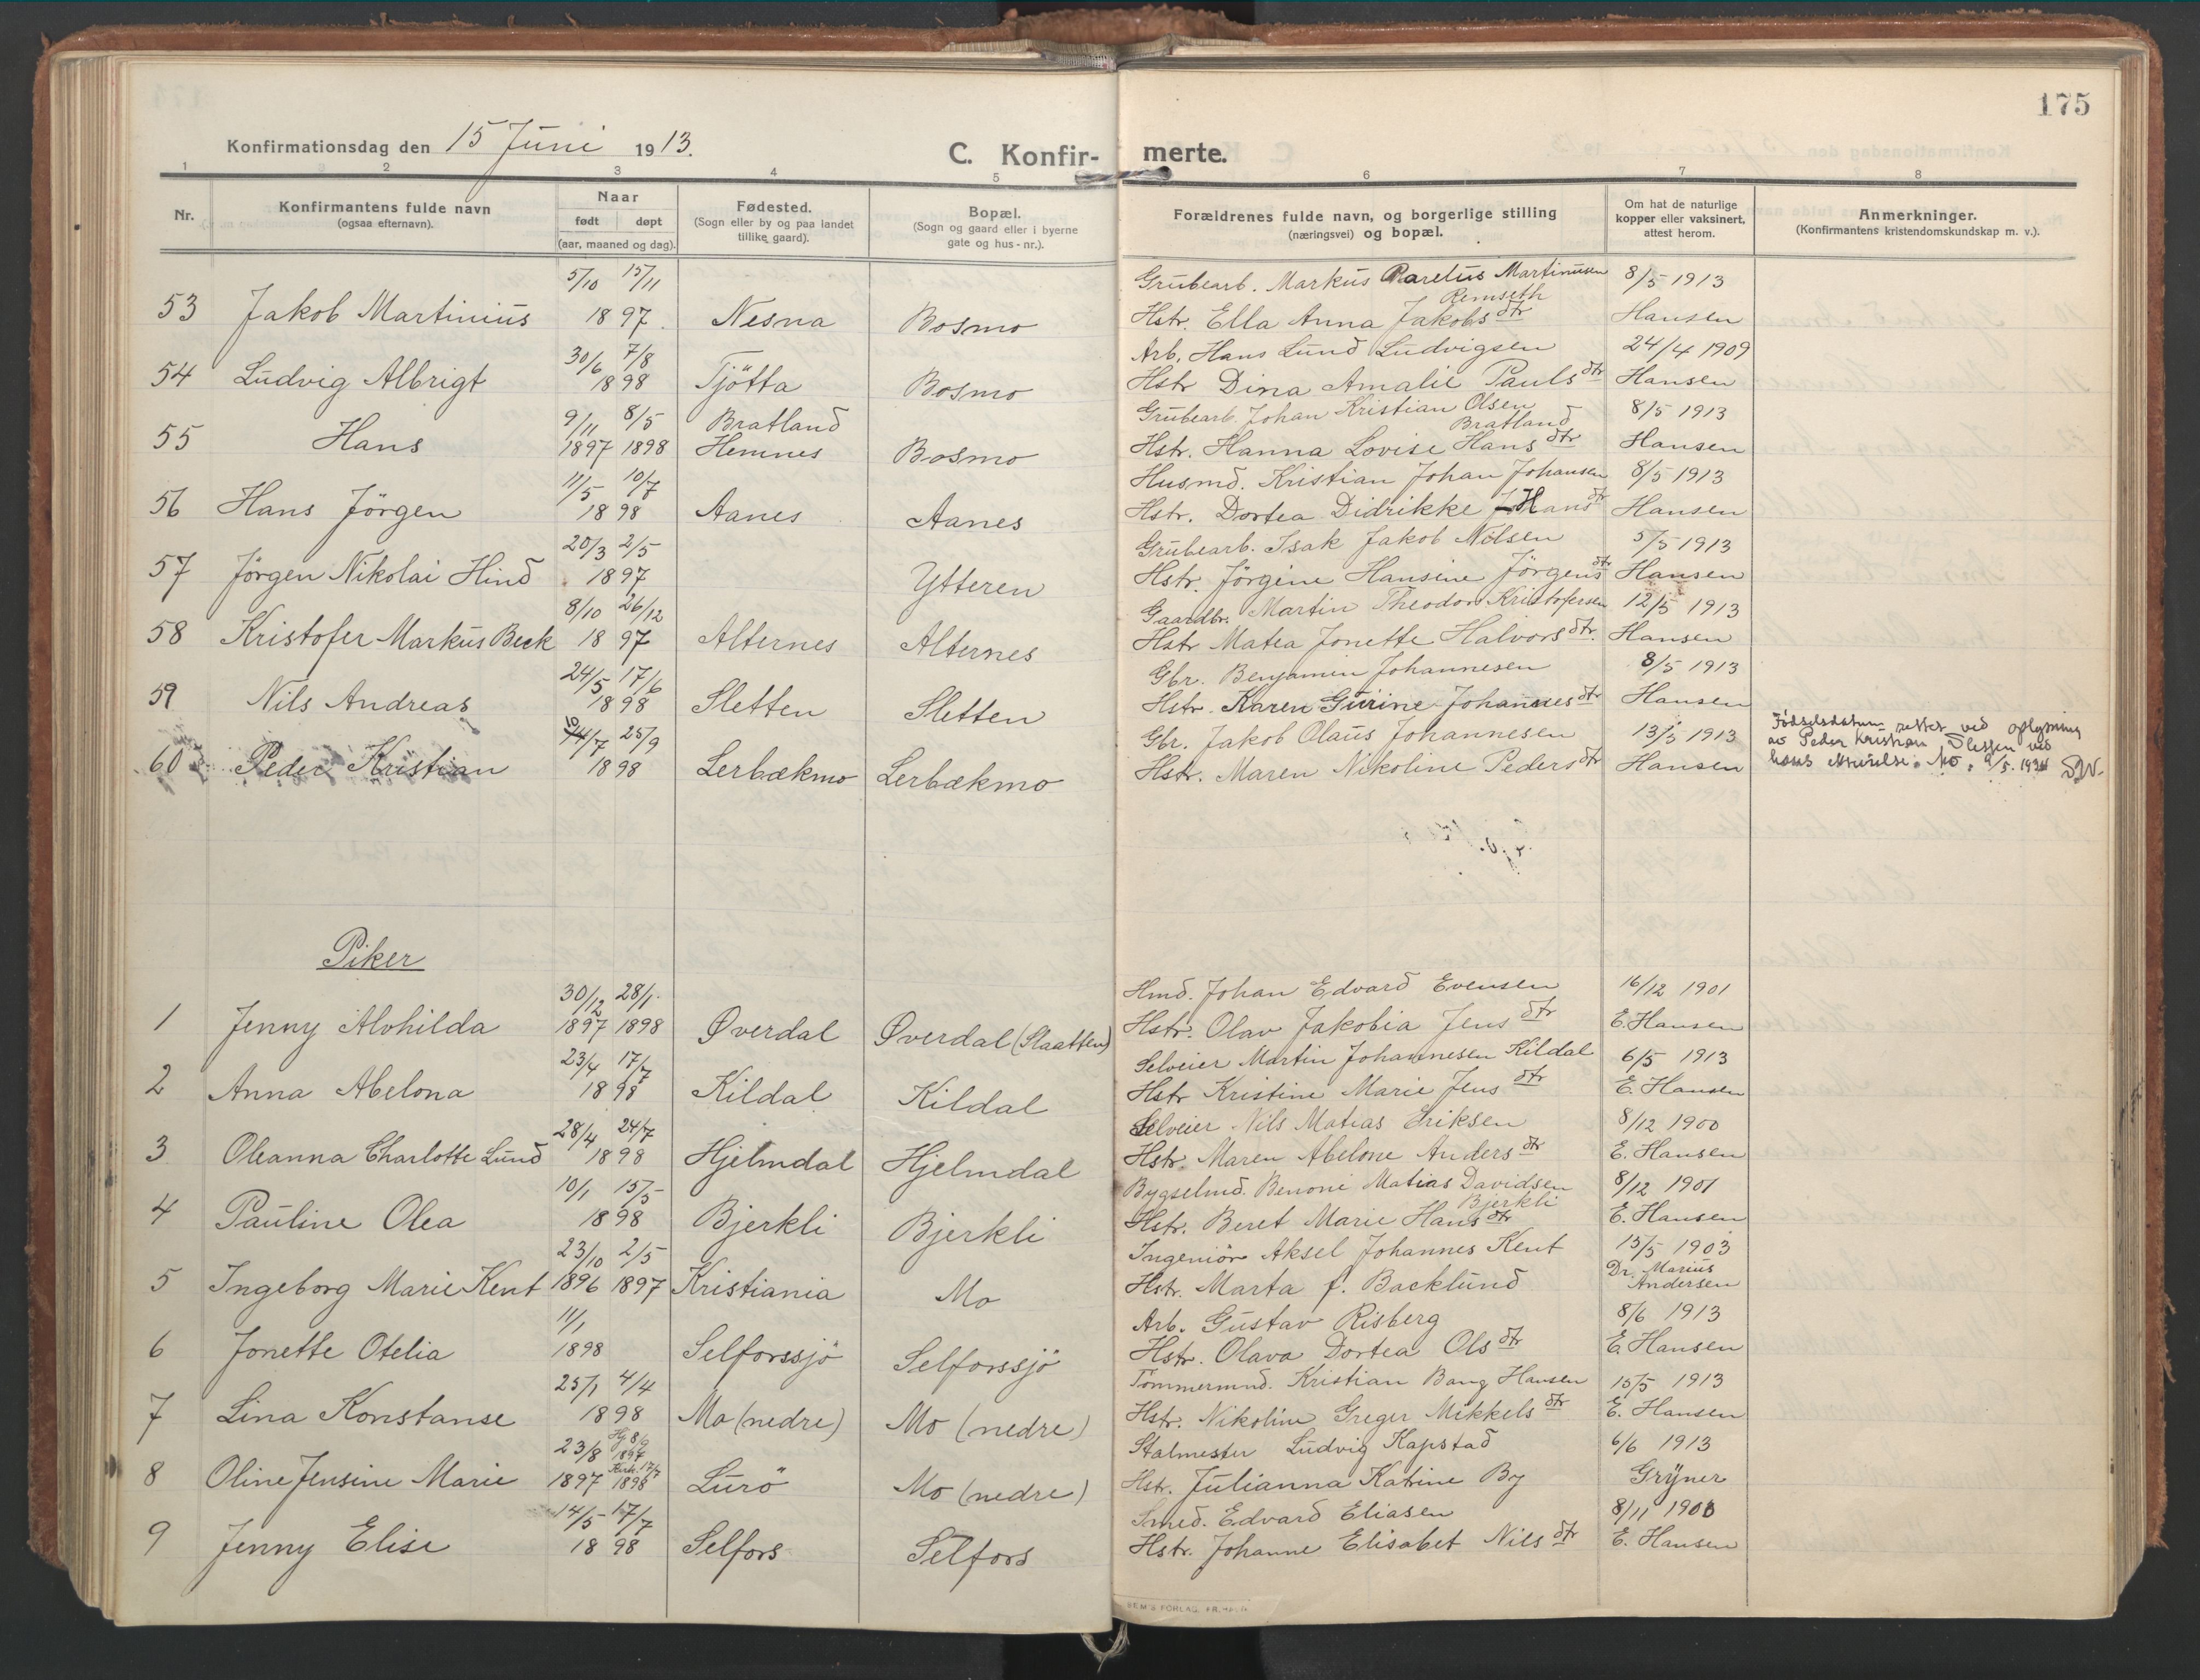 175
Konfirmationsdag den 15 Juni 1913.
C. Konfir- merte.
1 2 3 4 5 6 7 8
Nr.
Konfirmantens fulde navn
(ogsaa efternavn).
Naar
født døpt
(aar, maaned og dag).
Fødested.
(Sogn eller by og paa landet
tillike gaard).
Bopæl.
(Sogn og gaard eller i byerne
gate og hus-nr.).
Forældrenes fulde navn, og borgerlige stilling
(næringsvei) og bopæl.
Om hat de naturlige
kopper eller vaksinert,
attest herom.
Anmerkninger.
(Konfirmantens kristendomskundskap m. v.).
5/10 15/11 Grubearb. Markus Martinusen 8/5 1913
Remseth
53 Jakob Martinius 1897. Nesna Bosmo Hstr. Ella Anna Jakobsdtr Hansen
30/6 7/8 Arb. Hans Lund Ludvigsen 24/4 1909
54 Ludvig Albrigt 1898 Tjötta Bosmo Hstr Dina Amalie Paulsdtr Hansen
9/11 8/5 Bratland Grubearb. Johan Kristian Olsen 8/5 1913
Bratland
55 Hans 1897 1898 Hemnes Bosmo Hstr. Hanna Lovise Hansdtr Hansen
11/5 10/7 Husmd. Kristian Johan Johansen 8/5 1913
56 Hans Jörgen 1898 Aanes Aanes Hstr. Dortea Didrikke Hansdtr Hansen
20/3 2/5 Grubearb. Isak Jakob Nilsen 5/5 1913
57 Jörgen Nikolai Hind 1897 Ytteren Hstr. Jörgine Hansine Jörgensdtr Hansen
8/10 26/12 Gaardbr. Martin Theodor Kristofersen 12/5 1913
58 Kristofer Markus Beck 1897 Alternes Alternes Hstr Matea Jonette Halvorsdtr. Hansen
24/5 17/6 Gbr. Benjamin Johannesen 8/5 1913
59 Nils Andreas 1898 Sletten Sletten Hstr. Karen Gurine Johannesdtr Hansen
/7 25/9 Gbr. Jakob Olaus Johannesen 13/5 1913 Fødselsdatum rettet ved oplysning
av Peder Kristian ved
60 Peder Kristian 1898 Lerbækmo Lerbækmo Hstr. Maren Nikoline Pedersdtr Hansen hans Mo, 9/5. 1934
Piker
30/12 28/1. Hmd. Johan Edvard Evensen 16/12 1901
1 Jenny Alvhilda 1897 1898 Øverdal Øverdal (Slaatten) Hstr. Olav Jakobia Jensdtr E. Hansen
23/4 17/7 Selveier Martin Johannesen Kildal 6/5 1913
2 Anna Abelona 1898 Kildal Kildal Hstr Kristine Marie Jensdtr E. Hansen
28/4 24/7 Selveier Nils Matias Eriksen 8/12 1900
3 Oleanna Charlotte Lund 1898 Hjelmdal Hjelmdal Hstr. Maren Abelone Andersdtr E. Hansen
10/1 15/5 Bygselmd. Benoni Matias Davidsen 8/12 1901
Bjerkli
4 Pauline Olea 1898 Bjerkli Bjerkli Hstr. Beret Marie Hansdtr E. Hansen
23/10 2/5 Ingeniör Aksel Johannes Kent 15/5 1903
Dr. Marius
5 Ingeborg Marie Kent 1896 1897 Kristiania Mo Hstr. Marta f. Backlund Andersen
11/1 Arb. Gustav Risberg 8/6 1913
6 Jonette Otelia 1898 Selforssjö Selforssjö Hstr. Olava Dortea Olsdtr E. Hansen
25/1 4/4 Tömmermd. Kristian Bang Hansen 15/5 1913
7 Lina Konstanse 1898 Mo (nedre) Mo (nedre) Hstr. Nikoline Greger Mikkelsdtr E. Hansen
23/8 Hj 8/9 1897 Stalmester Ludvig Kapstad 6/6 1913
Kirk. 17/7
8 Oline Jensine Marie 1897 1898 Lurö Mo (nedre) Hstr. Julianna Katrine By Grÿner
14/5 17/7 Smed. Edvard Eliasen 8/11 1900
9 Jenny Elise 1898 Selfors Selfors Hstr. Johanne Elisabet Nilsdtr E. Hansen